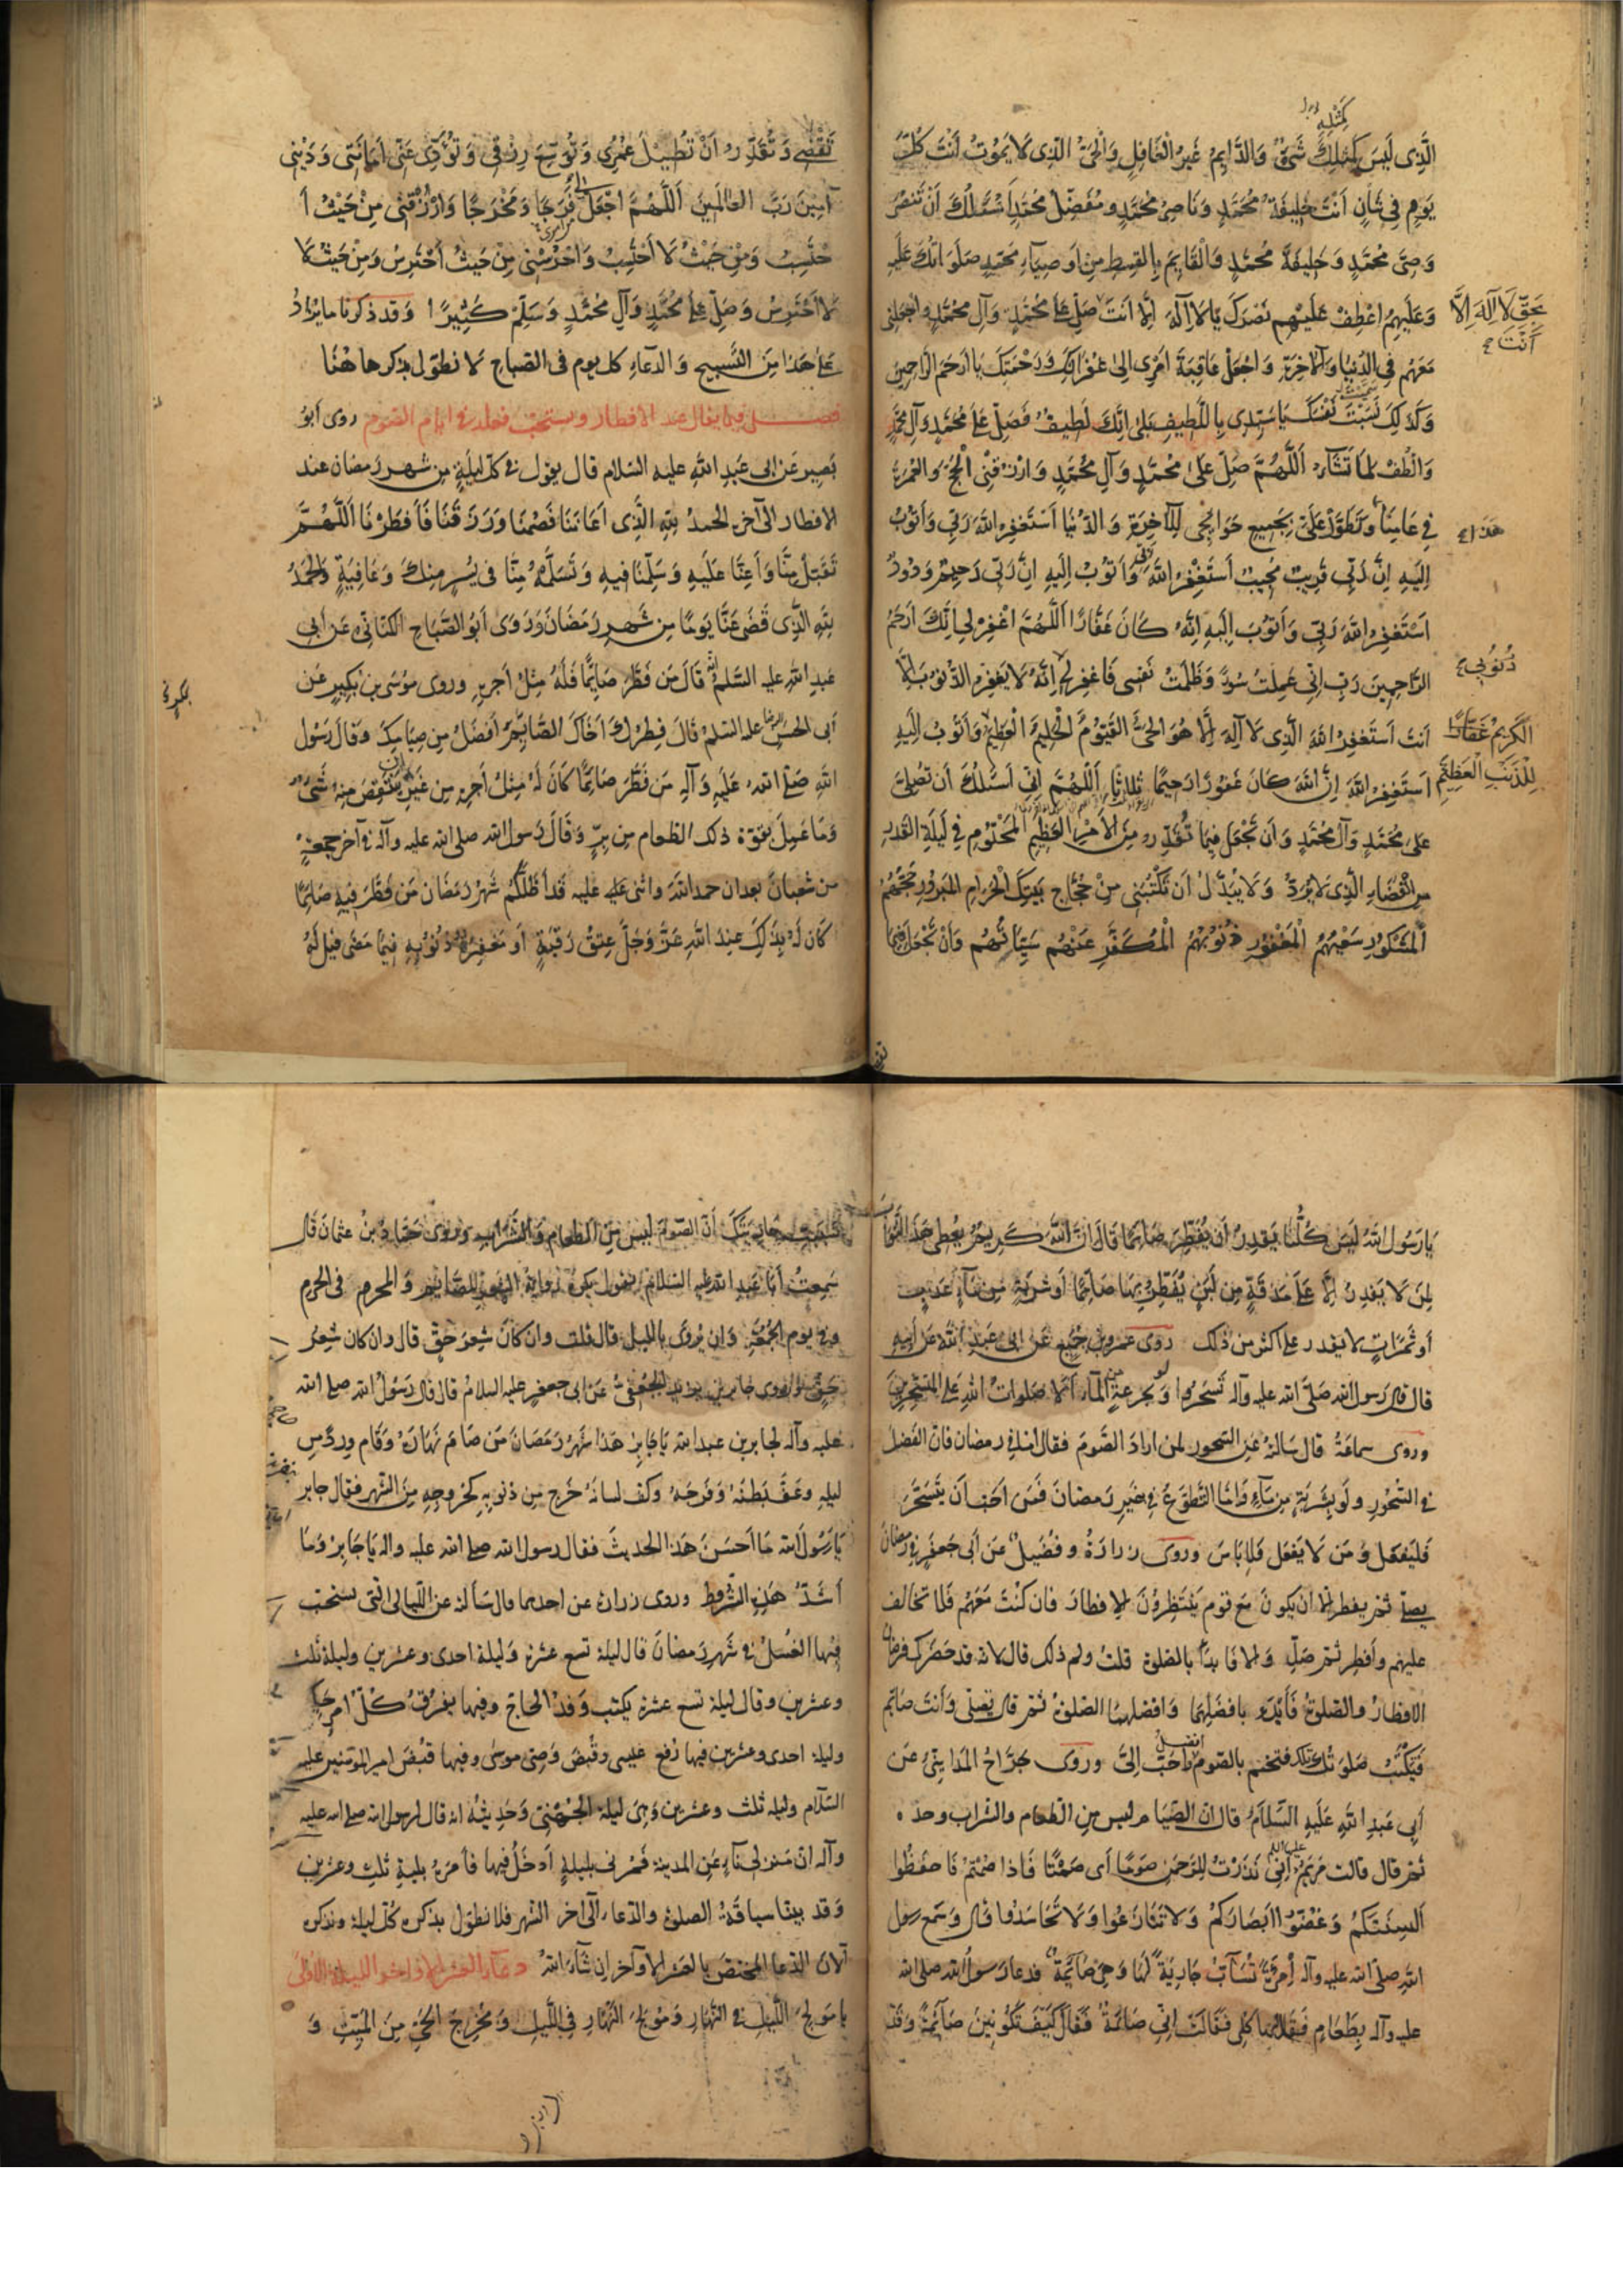 كَمِثْلِهِ
الَّذِى لَيسَ كَمِثلِكَ شَىْءٌ وَالدَّايِمُ غَيرُ الغَافِلِ وَالْحَىُّ الذِى لَا يَمُوتُ اَنتَ كُلَّ
يَومٍ فِى شَانٍ اَنْتَ خَلِيفَةُ مُحَمَّدٍ وَنَاصِرُ مُحَمَّدٍ وَمُفَضِّلُ مُحَمَّدٍ اَسْئَلُكَ اَنْ تَنْصُرَ
وَصِىَّ مُحَمَّدٍ وَخَلِيفَةَ مُحَمَّدٍ وَالْقَايِمَ بِالقِسطِ مِن اَوصِيَاءِ مُحَمَّدٍ صَلَوَاتُكَ عَلَيهِ
وَعَلَيهِمُ اعْطِفْ عَلَيْهِم نَصْرَكَ يَا لَا اِلَهَ اِلَّا اَنتَ صَلِّ عَلَى مُحَمَّدٍ وَآلِ مُحَمَّدٍ وَاجْعَلنِى
بِحَقِّ لَا اِلَهَ اِلَّا اَنْتَ
مَعَهُم فِى الدُّنيَا وَالآخِرَةِ وَاجْعَل عَاقِبَةَ اَمرِى اِلى غُفرَانِكَ وَرَحْمَتِكَ يَا اَرحَمَ الرَّاحِمِينَ
وَكَذَلِكَ نَسَبْتَ نَفْسَكَ يَا سَيِّدِى بِاللَّطِيفِ بَلَى اِنَّكَ لَطِيفٌ فَصَلِّ عَلَى مُحَمَّدٍ وَآلِ مُحَمَّدٍ
وَالْطُفْ لِمَا تَشَاءُ اَللَّهُمَّ صَلِّ عَلَى مُحَمَّدٍ وَآلِ مُحَمَّدٍ وَارْزُقْنِى الْحَجَّ وَالعُمْرَةَ
فِى عَامِنَا وَتَطَوَّلْ عَلَىَّ بِجَمِيعِ حَوَائِجِى لِلآخِرَةِ وَالدُّنيَا اَسْتَغفِرُ اللَّهَ رَبِّى وَاَتُوبُ
هَذَا
اِلَيهِ اِنَّ رَبِّى قَرِيبٌ مُجِيبٌ اَستَغْفِرُ اللَّهَ رَبِّى وَاَتُوبُ اِلَيهِ اِنَّ رَبِّى رَحِيمٌ وَدُودٌ
اَسْتَغفِرُ اللَّهَ رَبِّى وَاَتُوبُ اِلَيهِ اِنَّهُ كَانَ غَفَّارًا اَللَّهُمَّ اغْفِرْ لِى اِنَّكَ اَرحَمُ
الرَّاحِمِينَ رَبِّ اِنِّى عَمِلتُ سُوءً وَظَلَمتُ نَفسِى فَاغفِر لِى اِنَّهُ لَا يَغفِرُ الذُّنُوبَ اِلَّا
ذُنُوبِى
اَنتَ اَستَغفِرُ اللَّهَ الَّذِى لَا اِلَهَ اِلَّا هُوَ الحَىُّ القَيُّومُ الْحَلِيمُ الْعَظِيمُ وَاَتُوبُ اِلَيهِ
الكَرِيمُ غَفَّارًا
لِلذَّنبِ العَظِيمِ
اَستَغفِرُ اللَّهَ اِنَّ اللَّهَ كَانَ غَفُورًا رَحِيمًا ثلاثا اَللَّهُمَّ اِنِّى اَسئَلُكَ اَن تُصَلِّىَ
عَلَى مُحَمَّدٍ وَآلِ مُحَمَّدٍ وَاَن تَجْعَلَ فِيمَا تُقَدِّرُ مِنَ الاَمْرِ العَظِيمِ المَحْتُومِ فِى لَيلَةِ القَدرِ
مِنَ القَضَاءِ الَّذِى لَا يُرَدُّ وَلَا يُبَدَّلُ اَن تَكتُبَنِى مِنْ حُجَّاجِ بَيتِكَ الحَرَامِ المَبرُورِ حَجُّهُمُ
المَشكُورِ سَعْيُهُمُ المَغْفُورِ ذُنُوبُهُمُ الْمُكَفَّرِ عَنْهُم سَيِّئَاتُهُم وَاَنْ تَجْعَلَ فِيمَا
تَقْضِى وَتُقَدِّرُ اَنْ تُطِيلَ عُمْرِى وَتُوَسِّعَ رِزْقِى وَتُؤَدِّىَ عَنِّى اَمَانَتِى وَدَيْنِى
آمِينَ رَبَّ العَالَمِينَ اَللَّهُمَّ اجْعَلْ لى فَرَجًا وَمَخْرَجًا وَارْزُقْنِى مِنْ حَيْثُ اَ
حْتَسِبُ وَمِن حَيْثُ لَا اَحْتَسِبُ وَاحْرُسْنِى مِنْ حَيثُ اَحْتَرِسُ وَمِنْ حَيثُ لَا
لَا اَحْتَرِسُ وَصَلِّ عَلَى مُحَمَّدٍ وَآلِ مُحَمَّدٍ وَسَلِّمْ كَثِيرًا وقد ذكرنا ما يزاد
عَلَى هَذَا مِنَ التَّسبِيحِ وَالدّعَاءِ كل يوم فى الصباح لا نطول بذكرها هُنَا
فصل فيما يقال عند الافطار ويستحب فعله فى ايام الصوم روى ابُو
بَصِير عَن ابى عَبدِ اللهِ عليه السلام قال يقول فى كل ليلةٍ من شهر رمضان عند
الافطار الى آخره الحمدُ لِلَّهِ الَّذِى اَعَانَنَا فَصُمْنَا وَرَزَقَنَا فَاَفطَرْنَا اَللَّهُمَّ
تَقَبَّلْ مِنَّا وَاَعِنَّا عَلَيهِ وَسَلِّمْنَا فِيهِ وَتَسَلَّمْهُ مِنَّا فِى يُسْرٍ مِنكَ وَعَافِيَةٍ وَالحَمْدُ
لِلَّهِ الَّذِى قَضَى عَنَّا يَومًا مِن شَهرِ رَمَضَانَ وَرَوَى اَبُو الصَّبَاحِ الكنانى عَن اَبى
عَبدِ اللهِ عليه السّلمُ قَالَ مَن فَطَّرَ صَائِمًا فَلَهُ مِثلُ اَجرِهِ وروى موُسى بن بَكِيرٍ عَن
ابى الحسنِ عليه السلم قَالَ فِطْرُكَ اَخَاكَ الصَّائِمَ اَفضَلُ مِن صِيَامِكَ وقال رَسُول
اللهِ صَلَّى اللهُ عَلَيهِ وَآلِهِ مَن فَطَّرَ صَائِمًا كَانَ لَهُ مِثلُ اَجرِهِ مِن غَيرِ اَن يَنقُصَ مِنهُ شَىْءٌ
وَمَا عَمِلَ بقوة ذلك الطعام مِن بِرٍّ وَقَالَ رَسول الله صلى الله عليه وآله فى آخر جمعةٍ
من شعبانَ بعد ان حمد اللهَ واثنى عليه قَد اَظَلَّكُم شَهْرُ رَمَضَانَ مَن فَطَّرَ فِيهِ صَائِمًا
كَانَ لَهُ بِذَلِكَ عِندَ اللهِ عَزَّ وَجَلَّ عِتقُ رَقَبَةٍ او مَغفِرَةُ ذُنُوبِهِ فِيمَا مَضَى قِيلَ لَهُ
يَا رَسُولَ اللهِ لَيسَ كُلُّنَا يَقدِرُ اَن يُفَطِّرَ صَائِمًا قَالَ اِنَّ اللهَ كَرِيمٌ يُعطِى هَذَا الثَّوابَ
لِمَن لَا يَقدِرُ اِلَّا عَلَى مَذقَةٍ مِن لَبَنٍ يُفَطِّرُ بِهَا صَائِمًا اَو شَربَةٍ مِن مَاءٍ عَذبٍ
أَو تُمَيرَاتٍ لا يقدر على اكثر من ذلك روى عمرو بن جُمَيعٍ عَن ابى عَبدِ اللهِ عَن اَبِيهِ
قال قال رَسول الله صَلَّى الله عليه وآله تَسَحَّرُوا وَلَو بجرعة من المَاءِ اَلَا صَلَوَاتُ اللهِ عَلَى المتسحرينَ
وروى سماعَةُ قال سَالتهُ عَنِ السّحور لمن اراد الصّومَ فقال اما فى رمضان فان الفضل
فى السّحُورِ ولَو بِشَربَةٍ مِن مَاءٍ وَامّا التطوّع فِى غيرِ رَمضانَ فَمَن اَحَبَّ اَن يَتَسَحَّرَ
فَليَفعَل وَمَن لَا يَفعَل فَلا بَاسَ وروى زرارَةُ وفُضَيلٌ عَن اَبى جَعفَرٍ فِى رَمضانَ
يصلى ثمّ يفطر الّا ان يكونَ مَعَ قومٍ يَنتَظِرُونَ الافطارَ فان كنتَ مَعَهُم فَلا تخالف
عليهم وأفطِر ثمّ صَلِّ وَالا فابدَأ بالصلوة قلتُ ولم ذلك قال لانه قد حَضَرَكَ فرضان
الافطارُ والصلوةُ فَابدَأ بافضَلِهِمَا وافضلهمَا الصلوةُ ثم قال تصلّى وَأنتَ صَائِم
فَتُكتَبُ صَلوتُكَ تلك فتختم بالصّوم اَحَبُّ اِلىَّ وروى جرّاحُ المَدَاينِىُّ عَن
اَبِى عَبدِ اللهِ عَلَيهِ السَّلَامُ قَالَ انّ الصّيَامَ ليس مِن الطعام والشراب وحده
ثم قال قالت مَريَمُ اِنِّى نَذَرتُ لِلرَّحمنِ صَومًا اَى صَمْتًا فَاذا صُمْتُمْ فَاحفَظُوا
اَلسِنَتَكُم وَغُضُّوا اَبصَارَكُمْ وَلَا تَنَازَعُوا وَلَا تَحَاسَدُوا قال وسمع رسول
اللهِ صلى الله عليه وآله اِمرَأةً تُسَابُّ جَارِيَةً لَهَا وَهِىَ صَائِمَةٌ فدعا رَسولُ الله صلى الله
عليه وآله بِطَعَامٍ فَقَالَ لهَا كُلِى فَقَالَت اِنِّى صَائِمَةٌ فَقَالَ كَيفَ تَكُونِينَ صَائِمَةً وَقَد
سَبَبتِ جَارِيَتَكِ اِنّ الصّومَ ليسَ مِنَ الطعام والشراب وروى حَمَّادُ بنُ عثمانَ قال
سَمِعتُ اَبَا عَبدِ الله عليه السلام يقول يكره رواية الشعر للصائم والمحرم وفى الحرم
وفى يوم الجُمُعَةِ وان يُروَى بالليل قال قلت وان كانَ شِعرَ حَقٍّ قال وان كان شِعرَ
حَقٍّ وروى جابر بن يزيد الجُعفِىُّ عَن ابى جعفرٍ عليه السلامُ قال قال رَسُولُ الله صلى الله
عليه وآله لجابر بن عبد الله يَا جَابِرُ هَذا شَهرُ رَمَضَانَ مَن صَامَ نَهَارَهُ وَقَام وِردًا مِن
ليلِهِ وعَفَّ بَطنُهُ وَفَرجُهُ وكف لسانَهُ خَرَجَ مِن ذنوبِهِ كخُروجِهِ مِنَ الشّهرِ فقال جابر
يَا رَسُولَ الله مَا اَحسَنَ هَذَا الحَديثَ فقال رسول الله صلى الله عليه واله يَا جَابِرُ وَمَا
أشَدَّ هَذِهِ الشّروط وروى زرارة عن احدهما قال سَألته عن اللّيالى التى يستحب
فِيهَا الغُسلُ فى شَهرِ رَمضانَ قال ليلة تسع عشرة وَليلة احدى وعشرين وليلة ثلث
وعشرين وقال ليلة تسع عشرة يكتب وَفدُ الحاجّ وفيها يفرق كلّ امرٍ حَكِيم
وليلة احدى وعشرين فيها رُفِعَ عيسى وقُبِضَ وَصِىُّ موسى وفيها قُبِضَ امير المؤمنين عليه
السّلام وليلة ثلث وعشرين وَهِىَ ليلة الجُهَنِىّ وَحَدِيثُهُ انه قال لرسول الله صلى الله عليه
وآله ان منزلى نَاءٍ عَنِ المدينة فَمُرنى بليلةٍ اَدخُلُ فيها فَاَمَرَهُ بليلةِ ثلثٍ وعشرين
وقد بينا سياقَةَ الصلوة والدّعاء الى اخر الشّهر فلا نطوّل بذكره كُلَّ ليلةٍ ونذكره
الآن الدّعا المختصَّ بالعشر الاواخر اِن شَاءَ اللهُ دعاء العشر الاواخر الليلة الاولى
يا مُولِجَ اللَّيلِ فى النَّهَارِ وَمُولِجَ النَّهَارِ فِى اللَّيلِ وَمُخرِجَ الحَىِّ مِنَ المَيِّتِ وَ